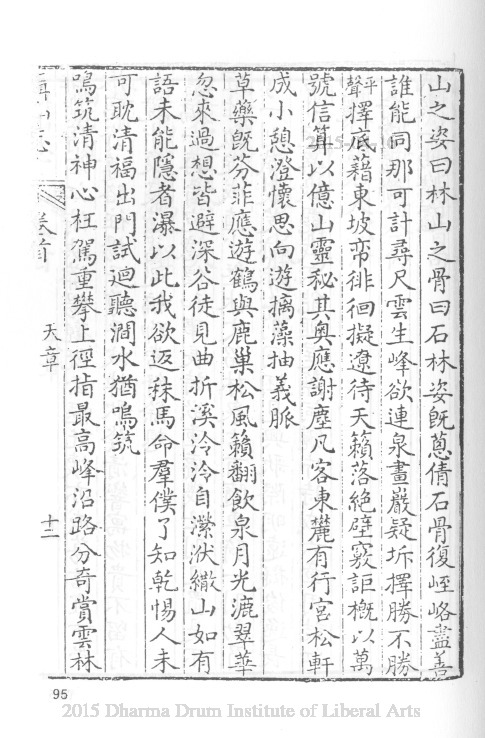 山之姿曰林山之骨曰石林姿旣蔥倩石骨復峌峈盡善
誰能同那可計尋尺雲生峰欲連泉畫巖疑坼擇勝不勝
平聲擇底藉東坡帟徘徊擬遼待天籟落絕壁竅詎槪以萬
號信算以億山靈秘其奧應謝塵凡客東麓有行宮松軒
成小憩澄懷思向遊摛藻抽義脈
草藥旣芬菲應遊鶴與鹿巢松風籟翻飲泉月光漉翠華
忽來過想皆避深谷徒見曲折溪泠泠自瀠洑緻山如有
語未能隱者瀑以此我欲返秣馬命羣僕了知乾惕人未
可耽清福出門試迴聽澗水猶鳴筑
鳴筑清神心枉駕重攀上徑指最高峰沿路分奇賞雲林
卷首
天章
十二
95
2015 Dharma Drum Institute of Liberal Arts